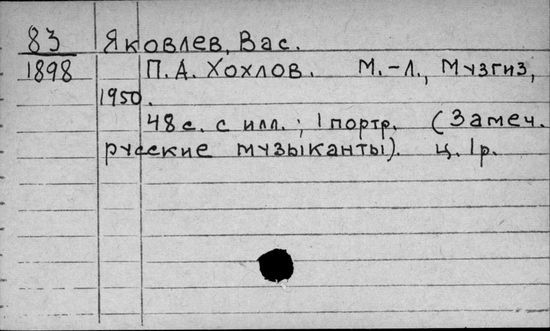 83 Яковлев, Вас.
1898 П. А. Хохлов. М.-Л., Музгиз,
1950.
48 с. с илл.; 1 портр. (Замеч.
русские музыканты). ц. 1р.